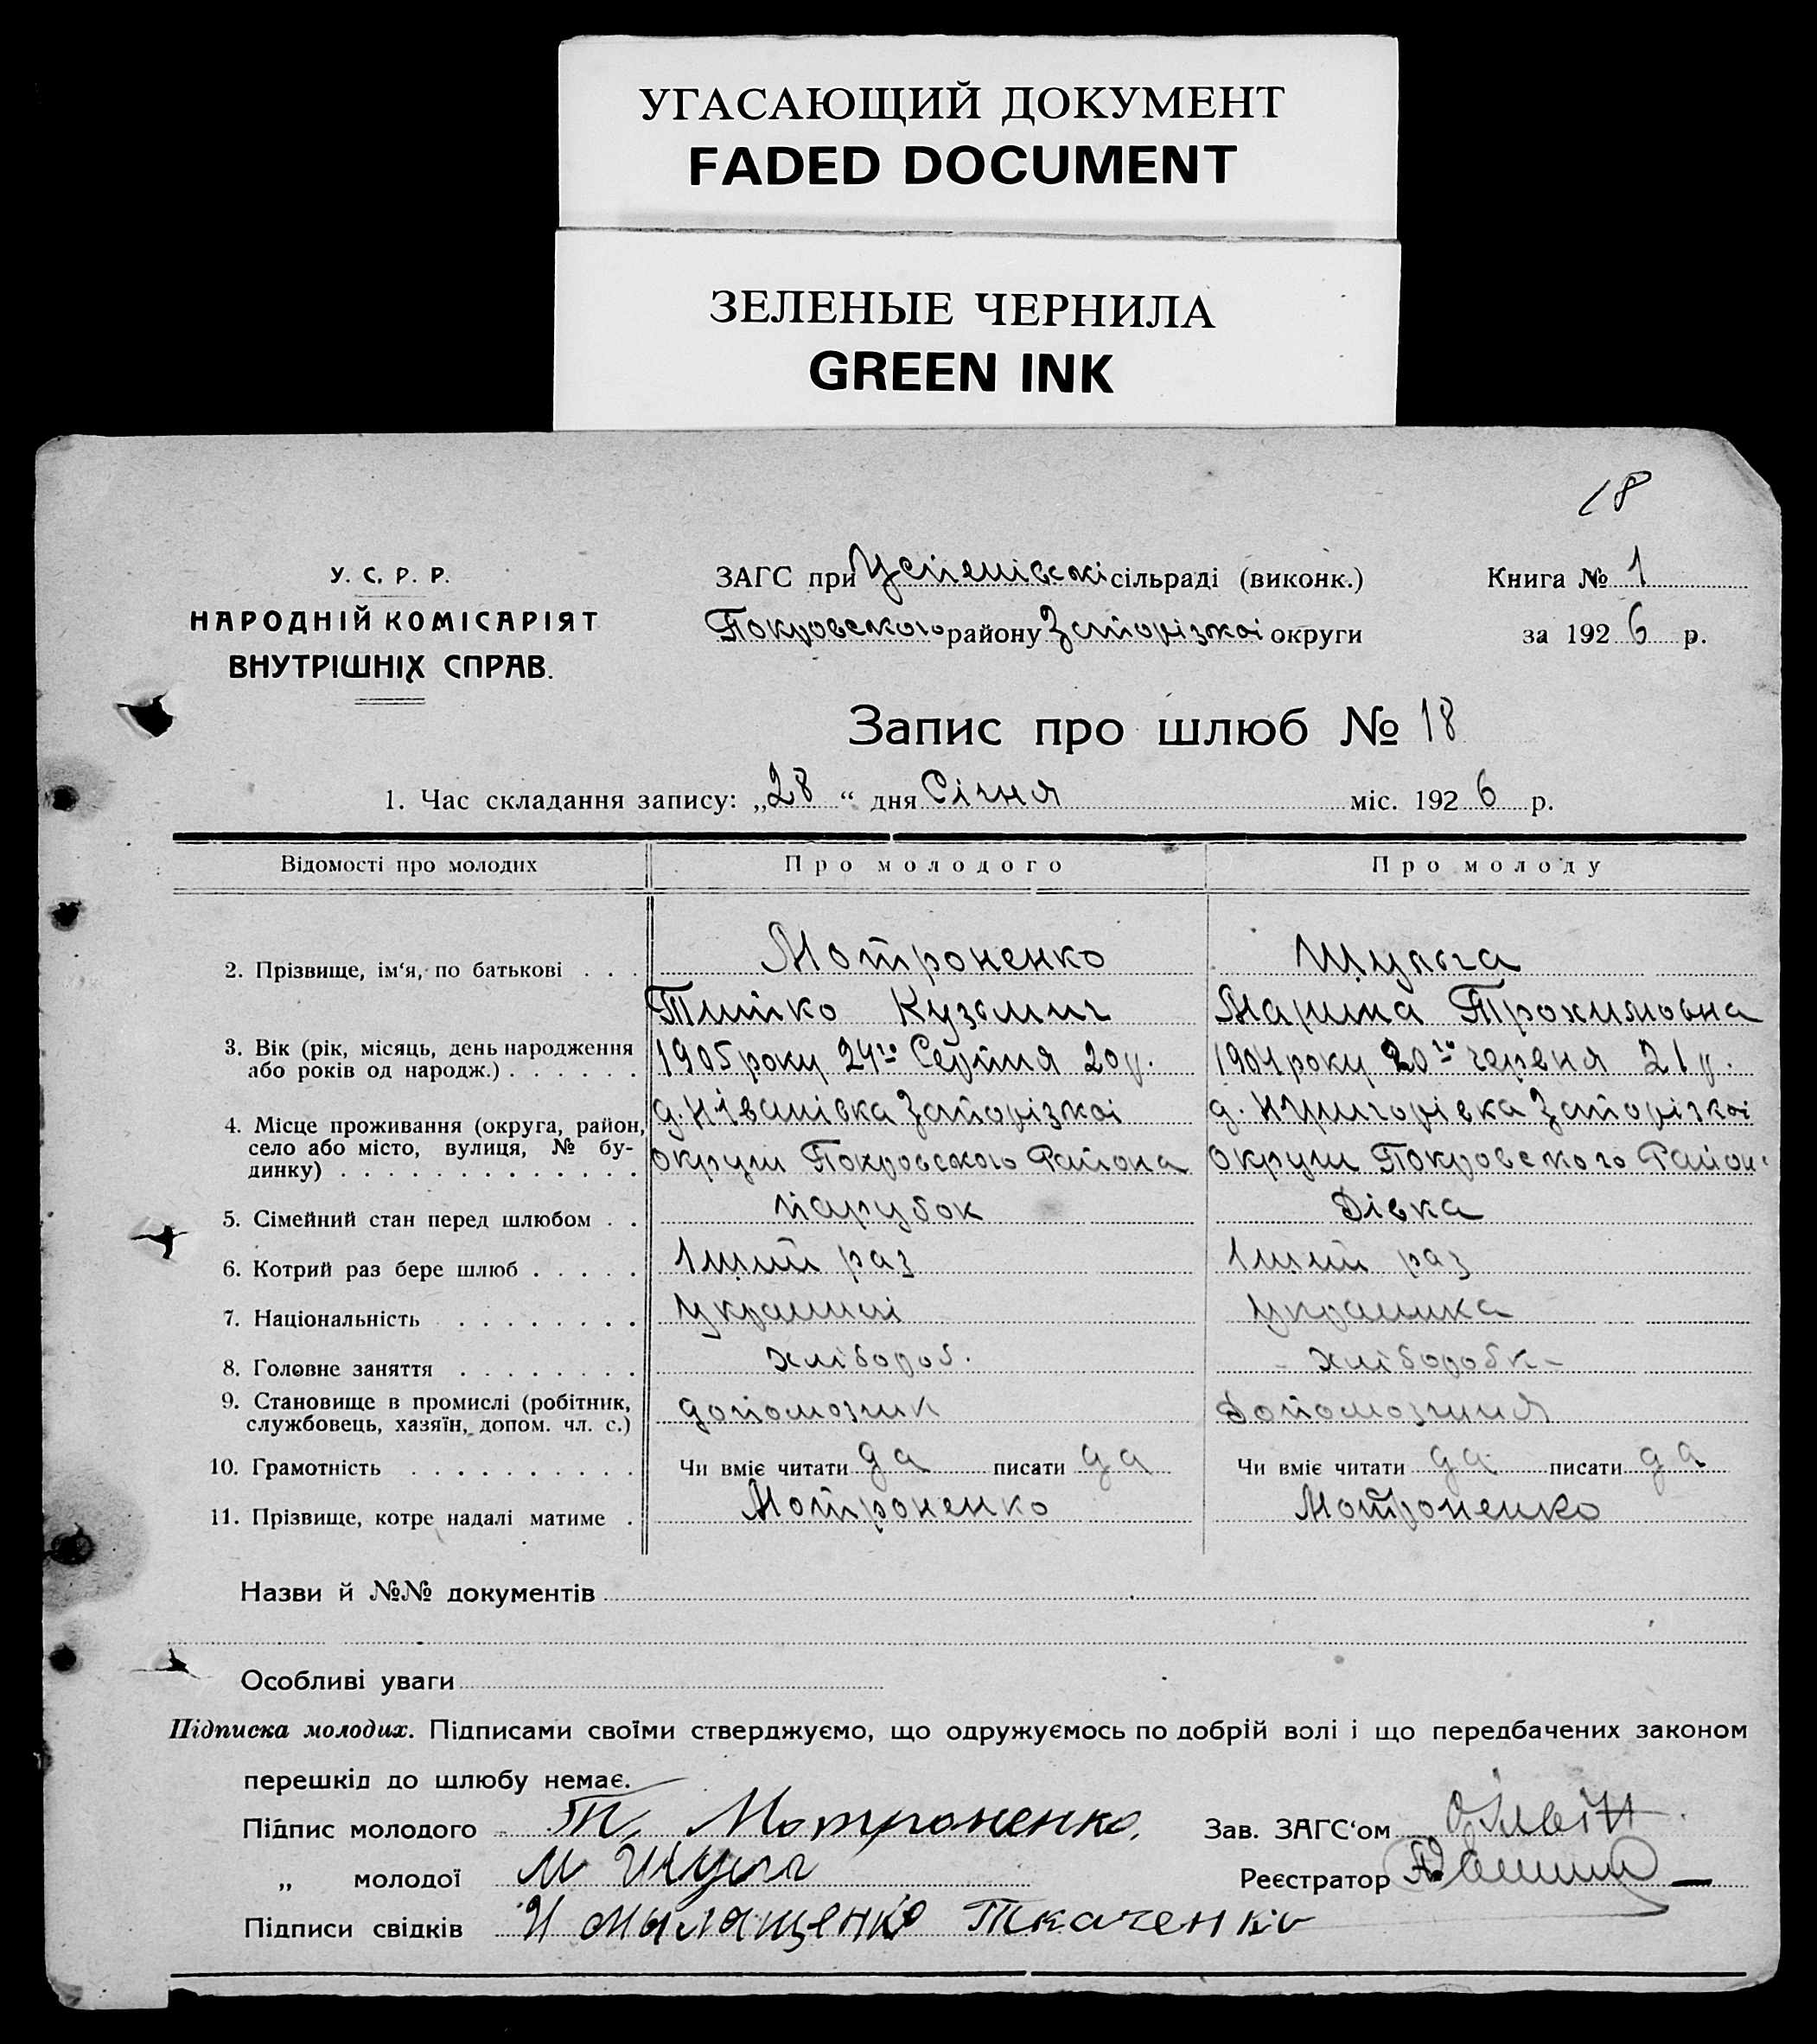 УГАСАЮЩИЙ ДОКУМЕНТ
FADED DOCUMENT
ЗЕЛЕНЫЕ ЧЕРНИЛА
GREEN INK
18
У. С. Р. Р.
НАРОДНІЙ КОМІСАРІЯТ
ВНУТРІШНІХ СПРАВ.
ЗАГС при Успенівські сільраді (виконк.)
Покровського району Запорізкої округи
Книга № 1
за 1926 р.
Запис про шлюб № 18
1. Час складання запису: „28“ дня Січня міс. 1926 р.
Відомості про молодих Про молодого Про молоду
2. Прізвище, ім‘я, по батькові . . . Мотроненко Шульга
Кузьмич Марина Трохимовна
3. Вік (рік, місяць, день народження 1905 року 24го Серпня 20 р. 1904 року 20го червня 21 р.
або років од народж.) . . . . . .
4. Місце проживання (округа, район, д. Н Іванівка Запорізкої д. Н Григорівка Запорізкої
село або місто, вулиця, № бу-
динку) . . . . . . . . . . . . . округи Покровського Района округи Покровського Район
5. Сімейний стан перед шлюбом . . парубок Дівка
6. Котрий раз бере шлюб . . . . . 1ший раз 1ший раз
7. Національність . . . . . . . . Украинка
8. Головне заняття . . . . . . . . хлібороб. хлібороб
9. Становище в промислі (робітник, допомозник Допомозниця
службовець, хазяїн, допом. чл. с.)
10. Грамотність . . . . . . . . . . Чи вміє читати да писати да Чи вміє читати да писати да
11. Прізвище, котре надалі матиме . Мотроненко Мотроненко
Назви й №№ документів
Особливі уваги
Підписка молодих. Підписами своїми стверджуємо, що одружуємось по добрій волі і що передбачених законом
перешкід до шлюбу немає.
Підпис молодого Т. Мотроненко. Зав. ЗАГС‘ом
„ молодої М Шульга Реєстратор
Підписи свідків Ткаченко